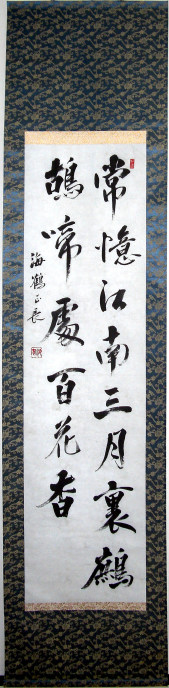 常憶江南三月裏鷓
鴣啼處百花香
海鶴正長